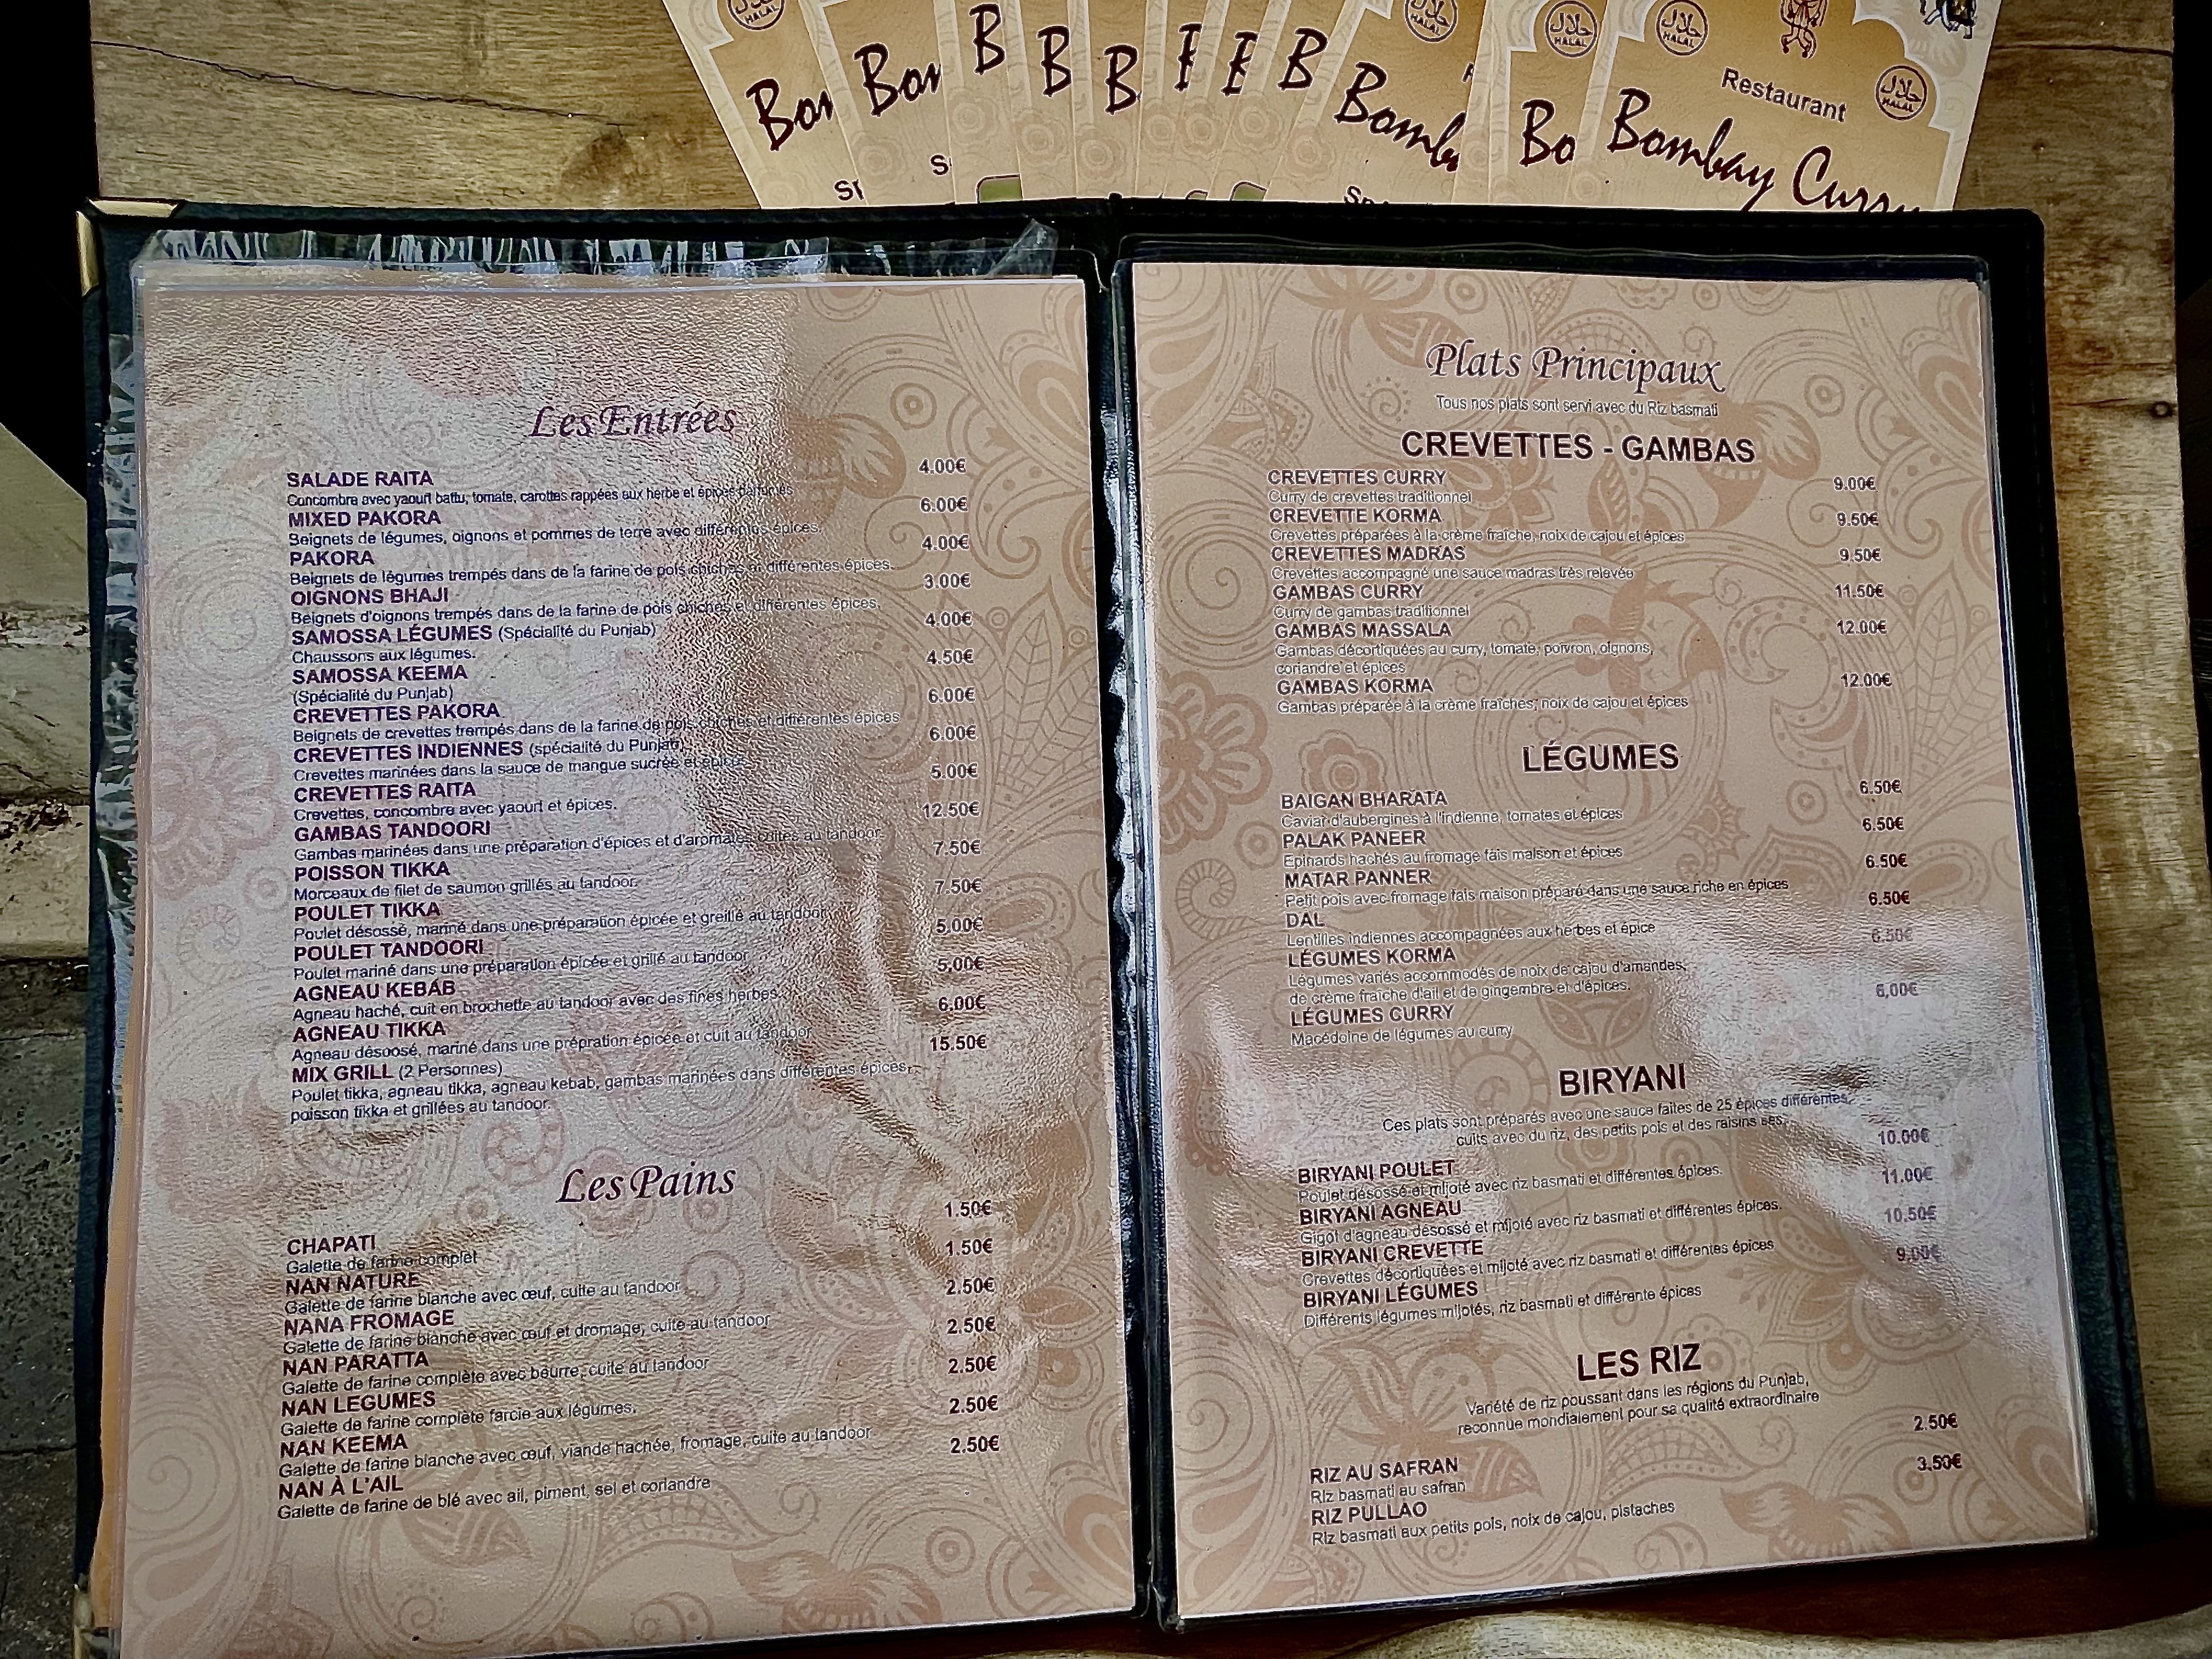 حلال
HALAL
Bom
Bom
B
B
B
B
Bomb
حلال
HALAL
Bo
حلال
HALAL
Restaurant
حلال
HALAL
Bombay Curry
حلال
HALAL
Les Entrées
SALADE RAITA 4.00€
Concombre avec yaourt battu, tomate, carottes rappées aux herbe et épices parfumés
MIXED PAKORA 6.00€
Beignets de légumes, oignons et pommes de terre avec différentes épices.
PAKORA 4.00€
Beignets de légumes trempés dans de la farine de pois chiches et différentes épices.
OIGNONS BHAJI 3.00€
Beignets d'oignons trempés dans de la farine de pois chiches et différentes épices.
SAMOSSA LÉGUMES (Spécialité du Punjab) 4.00€
Chaussons aux légumes.
SAMOSSA KEEMA 4.50€
(Spécialité du Punjab)
CREVETTES PAKORA 6.00€
Beignets de crevettes trempés dans de la farine de pois chiches et différentes épices
CREVETTES INDIENNES (spécialité du Punjab) 6.00€
Crevettes marinées dans la sauce de mangue sucrée et épice
CREVETTES RAITA 5.00€
Crevettes, concombre avec yaourt et épices.
GAMBAS TANDOORI 12.50€
Gambas marinées dans une préparation d'épices et d'aromates cuites au tandoor
POISSON TIKKA 7.50€
Morceaux de filet de saumon grillés au tandoor.
POULET TIKKA 7.50€
Poulet désossé, mariné dans une préparation épicée et greillé au tandoor
POULET TANDOORI 5.00€
Poulet mariné dans une préparation épicée et grillé au tandoor
AGNEAU KEBAB 5.00€
Agneau haché, cuit en brochette au tandoor avec des fines herbes.
AGNEAU TIKKA 6.00€
Agneau désoosé, mariné dans une prépration épicée et cuit au tandoor
MIX GRILL (2 Personnes) 15.50€
Poulet tikka, agneau tikka, agneau kebab, gambas marinées dans différentes épices,
poisson tikka et grillées au tandoor.
Les Pains
CHAPATI 1.50€
Galette de farine complet
NAN NATURE 1.50€
Galette de farine blanche avec œuf, cuite au tandoor
NANA FROMAGE 2.50€
Galette de farine blanche avec œuf et dromage, cuite au tandoor
NAN PARATTA 2.50€
Galette de farine complète avec beurre, cuite au tandoor
NAN LEGUMES 2.50€
Galette de farine complète farcie aux légumes.
NAN KEEMA 2.50€
Galette de farine blanche avec œuf, viande hachée, fromage, cuite au tandoor
NAN À L'AIL 2.50€
Galette de farine de blé avec ail, piment, sel et coriandre
Plats Principaux
Tous nos plats sont servi avec du Riz basmati
CREVETTES - GAMBAS
CREVETTES CURRY 9.00€
Curry de crevettes traditionnel
CREVETTE KORMA 9.50€
Crevettes préparées à la crème fraîche, noix de cajou et épices
CREVETTES MADRAS 9.50€
Crevettes accompagné une sauce madras très relevée
GAMBAS CURRY 11.50€
Curry de gambas traditionnel
GAMBAS MASSALA 12.00€
Gambas décortiquées au curry, tomate, poivron, oignons,
coriandre et épices
GAMBAS KORMA 12.00€
Gambas préparée à la crème fraîches, noix de cajou et épices
LÉGUMES
BAIGAN BHARATA 6.50€
Caviar d'aubergines à l'indienne, tomates et épices
PALAK PANEER 6.50€
Epinards hachés au fromage fais maison et épices
MATAR PANNER 6.50€
Petit pois avec fromage fais maison préparé dans une sauce riche en épices
DAL 6.50€
Lentilles indiennes accompagnées aux herbes et épice
LÉGUMES KORMA 6.50€
Légumes variés accommodés de noix de cajou d'amandes,
de crème fraîche d'ail et de gingembre et d'épices.
LÉGUMES CURRY 6,00€
Macédoine de légumes au curry
BIRYANI
Ces plats sont préparés avec une sauce faites de 25 épices différentes,
cuits avec du riz, des petits pois et des raisins ses.
BIRYANI POULET 10.00€
Poulet désossé et mijoté avec riz basmati et différentes épices.
BIRYANI AGNEAU 11.00€
Gigot d'agneau désossé et mijoté avec riz basmati et différentes épices.
BIRYANI CREVETTE 10.50€
Crevettes décortiquées et mijoté avec riz basmati et différentes épices
BIRYANI LÉGUMES 9,00€
Différents légumes mijotés, riz basmati et différente épices
LES RIZ
Variété de riz poussant dans les régions du Punjab,
reconnue mondialement pour sa qualité extraordinaire
RIZ AU SAFRAN 2.50€
Riz basmati au safran
RIZ PULLAO 3.50€
Riz basmati aux petits pois, noix de cajou, pistaches